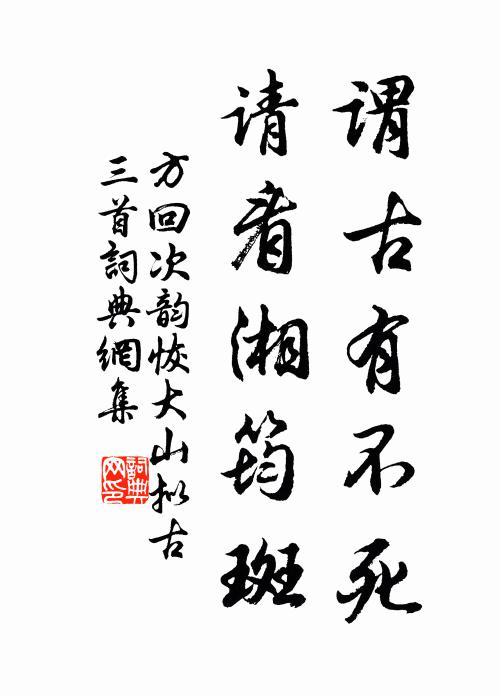 谓古有不死
请看湘筠斑
方回次韵恢大山拟古
三首詞典網集
詞典
网印